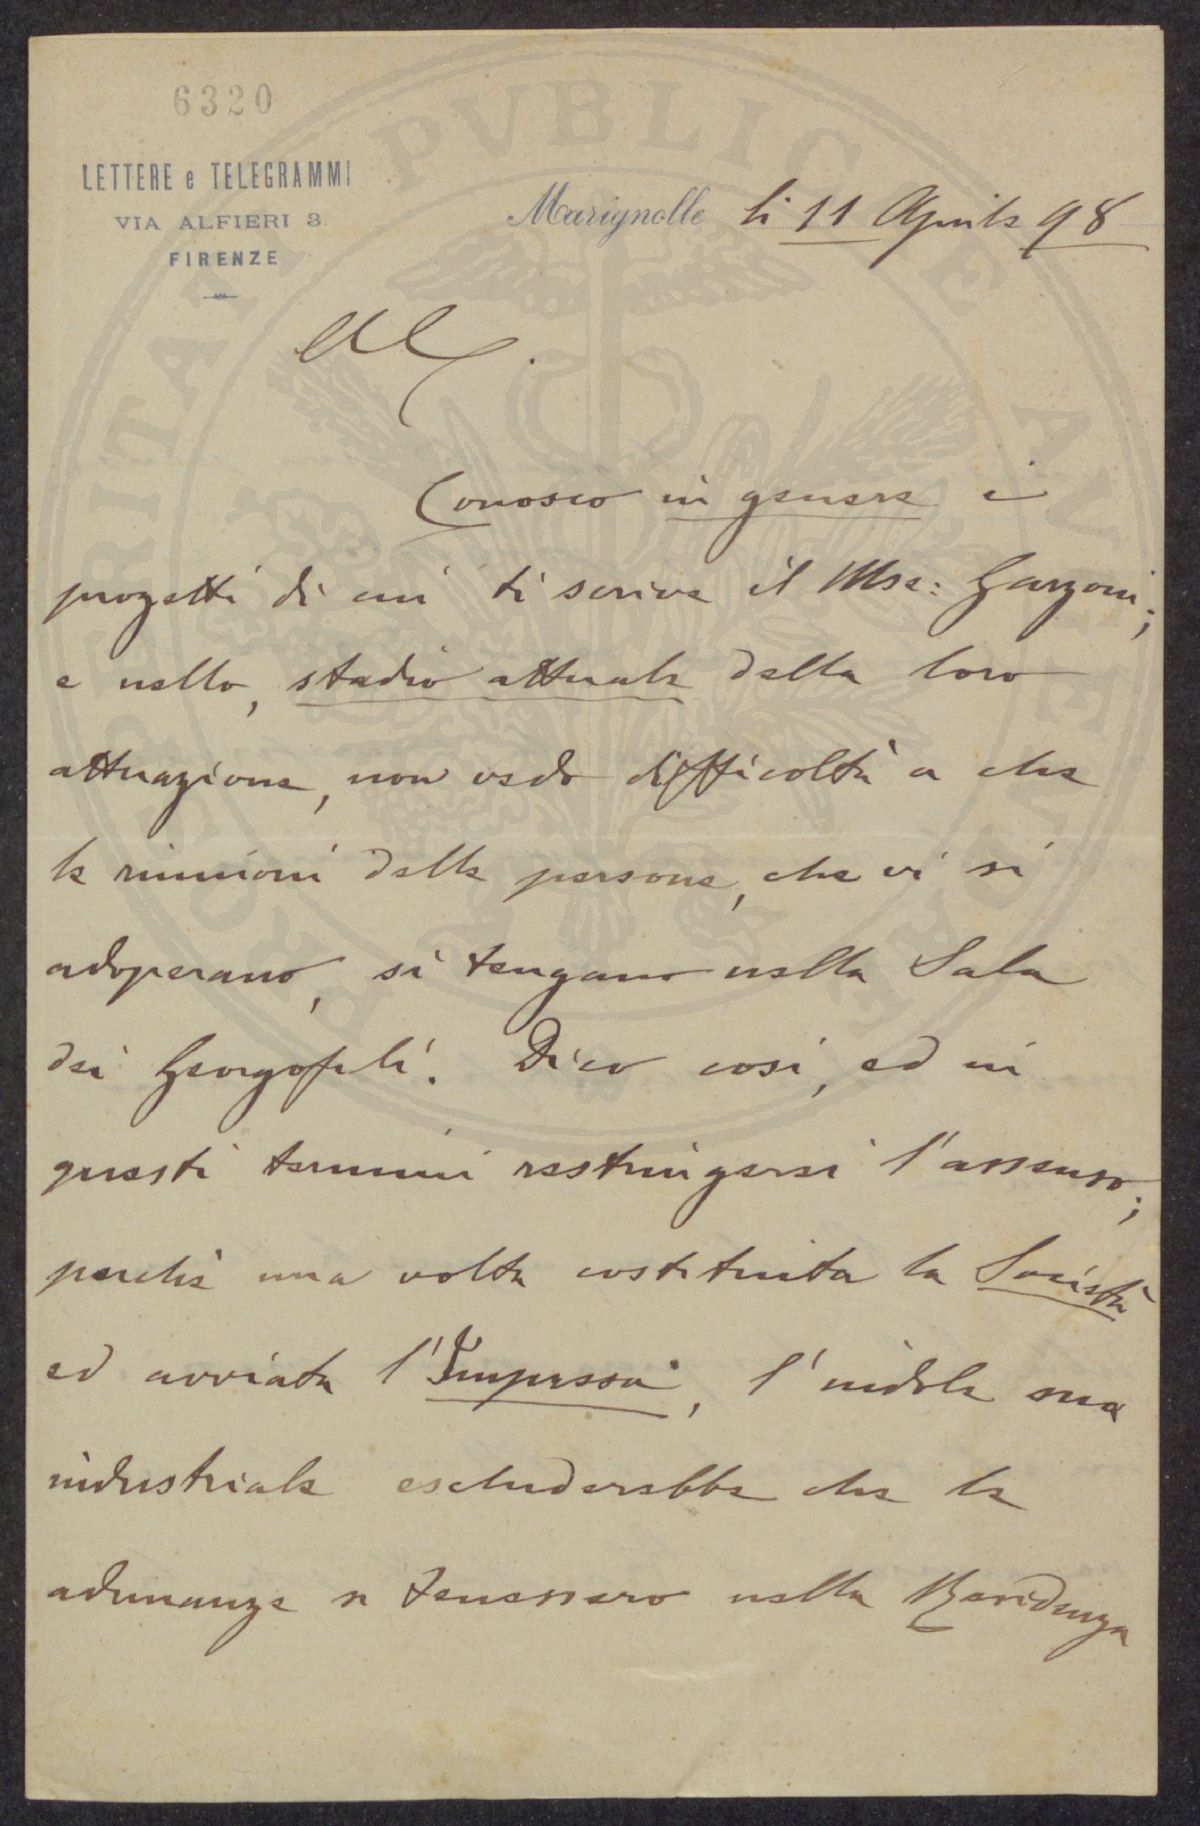 6320
LETTERE e TELEGRAMMI
VIA ALFIERI 3
FIRENZE
Marignolle li 11 Aprile 98
Conosco in genere i
progetti di cui ti scrive il Mse: Garzoni;
e nello, stadio attuale della loro
attuazione, non vedo difficoltà a che
le riunioni delle persone, che vi si
adoperano, si tengano nella Sala
dei Georgofili. Dico così, ed in
questi termini restringerei l'assenso;
perchè una volta costituita la Società
ed avviata l'Impresa, l'indole sua
industriale escluderebbe che le
adunanze si tenessero nella Residenza
PROSPERITATI PVBLICAE AVGENDAE